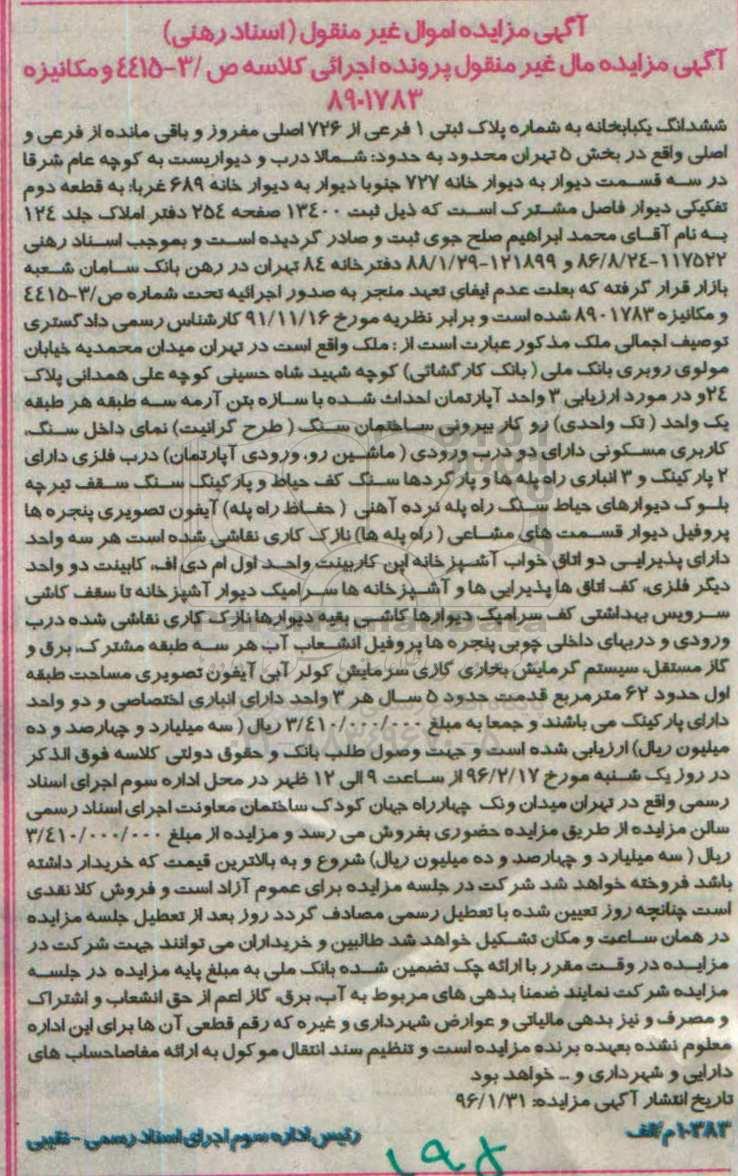 آگهی مزایده اموال غیر منقول (اسناد رهنی)
آگهی مزایده مال غیر منقول پرونده اجرائی کلاسه ص /۳-٤٤١٥ و مکانیزه
۸۹۰۱۷۸۳
ششدانگ یکبابخانه به شماره پلاک ثبتی ۱ فرعی از ۷۲۶ اصلی مفروز و باقی مانده از فرعی و
اصلی واقع در بخش ۵ تهران محدود به حدود: شمالا درب و دیواریست به کوچه عام شرقا
در سه قسمت دیوار به دیوار خانه ۷۲۷ جنوبا دیوار به دیوار خانه ۶۸۹ غربا: به قطعه دوم
تفکیکی دیوار فاصل مشترک است که ذیل ثبت ۱۳٤۰۰ صفحه ۲۵٤ دفتر املاک جلد ۱۲٤
به نام آقای محمد ابراهیم صلح جوی ثبت و صادر گردیده است و بموجب اسناد رهنی
۱۱۷۵۲۲-۸۶/۸/۲٤ و ۱۲۱۸۹۹-۸۸/۱/۲۹ دفترخانه ۸٤ تهران در رهن بانک سامان شعبه
بازار قرار گرفته که بعلت عدم ایفای تعهد منجر به صدور اجرائیه تحت شماره ص/۳-٤٤۱۵
و مکانیزه ۸۹۰۱۷۸۳ شده است و برابر نظریه مورخ ۹۱/۱۱/۱۶ کارشناس رسمی دادگستری
توصیف اجمالی ملک مذکور عبارت است از : ملک واقع است در تهران میدان محمدیه خیابان
مولوی روبری بانک ملی ( بانک کارگشائی) کوچه شهید شاه حسینی کوچه علی همدانی پلاک
۲٤و در مورد ارزیابی ۳ واحد آپارتمان احداث شده با سازه بتن آرمه سه طبقه هر طبقه
یک واحد ( تک واحدی) رو کار بیرونی ساختمان سنگ ( طرح گرانیت) نمای داخل سنگ،
کاربری مسکونی دارای دو درب ورودی ( ماشین رو، ورودی آپارتمان) درب فلزی دارای
۲ پارکینگ و ۳ انباری راه پله ها و پارگردها سنگ کف حیاط و پارکینگ سنگ سقف تیرچه
بلوک دیوارهای حیاط سنگ راه پله نرده آهنی ( حفاظ راه پله) آیفون تصویری پنجره ها
پروفیل دیوار قسمت های مشاعی ( راه پله ها) نازک کاری نقاشی شده است هر سه واحد
دارای پذیرایی دو اتاق خواب آشپزخانه اپن کابینت واحد اول ام دی اف، کابینت دو واحد
دیگر فلزی، کف اتاق ها پذیرایی ها و آشپزخانه ها سرامیک دیوار آشپزخانه تا سقف کاشی
سرویس بهداشتی کف سرامیک دیوارها کاشی بقیه دیوارها نازک کاری نقاشی شده درب
ورودی و دربهای داخلی چوبی پنجره ها پروفیل انشعاب آب هر سه طبقه مشترک، برق و
گاز مستقل، سیستم گرمایش بخاری گازی سرمایش کولر آبی آیفون تصویری مساحت طبقه
اول حدود ۶۲ مترمربع قدمت حدود ۵ سال هر ۳ واحد دارای انباری اختصاصی و دو واحد
دارای پارکینگ می باشند و جمعا به مبلغ ۳/٤۱۰/۰۰۰/۰۰۰ ریال ( سه میلیارد و چهارصد و ده
میلیون ریال) ارزیابی شده است و جهت وصول طلب بانک و حقوق دولتی کلاسه فوق الذکر
در روز یک شنبه مورخ ۹۶/۲/۱۷ از ساعت ۹ الی ۱۲ ظهر در محل اداره سوم اجرای اسناد
رسمی واقع در تهران میدان ونک چهارراه جهان کودک ساختمان معاونت اجرای اسناد رسمی
سالن مزایده از طریق مزایده حضوری بفروش می رسد و مزایده از مبلغ ۳/٤۱۰/۰۰۰/۰۰۰
ریال ( سه میلیارد و چهارصد و ده میلیون ریال) شروع و به بالاترین قیمت که خریدار داشته
باشد فروخته خواهد شد شرکت در جلسه مزایده برای عموم آزاد است و فروش کلا نقدی
است چنانچه روز تعیین شده با تعطیل رسمی مصادف گردد روز بعد از تعطیل جلسه مزایده
در همان ساعت و مکان تشکیل خواهد شد طالبین و خریداران می توانند جهت شرکت در
مزایده در وقت مقرر با ارائه چک تضمین شده بانک ملی به مبلغ پایه مزایده در جلسه
مزایده شرکت نمایند ضمنا بدهی های مربوط به آب، برق، گاز اعم از حق انشعاب و اشتراک
و مصرف و نیز بدهی مالیاتی و عوارض شهرداری و غیره که رقم قطعی آن ها برای این اداره
معلوم نشده بعهده برنده مزایده است و تنظیم سند انتقال موکول به ارائه مفاصاحساب های
دارایی و شهرداری و ... خواهد بود
تاریخ انتشار آگهی مزایده: ۹۶/۱/۳۱
۱۰۳۸۳م/الف رئیس اداره سوم اجرای اسناد رسمی - نقیبی